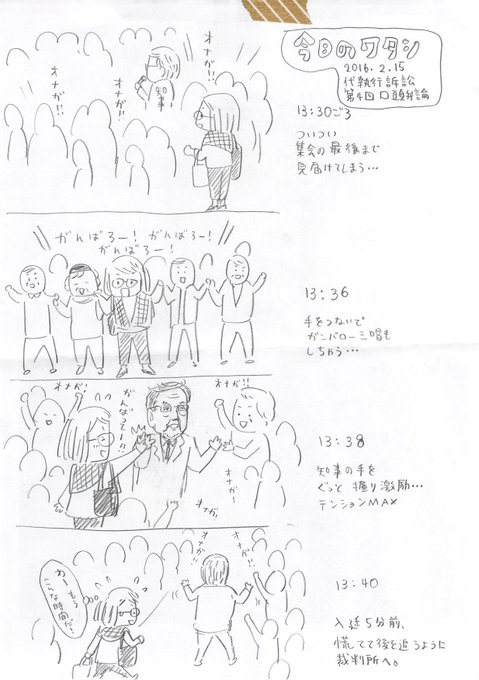 今日のワタシ
2016.2.15
代執行訴訟
第4回口頭弁論
オナガ!!
オナガ!!
オナガ!!
知事
13:30ごろ
ついつい
集会の最後まで
見届けてしまう…
がんばろー! がんばろー!
がんばろー!
13:36
手をつないで
ガンバロー三唱も
しちゃう…
オナガ!
オナガ!!
がんばってー!!!
オナガ!
オナガ!
13:38
知事の手を
ぐっと握り激励…
テンションMAX
オナガ!!
オナガ!!
わーもう
こんな時間だ!
13:40
入廷5分前、
慌てて後を追うように
裁判所へ。